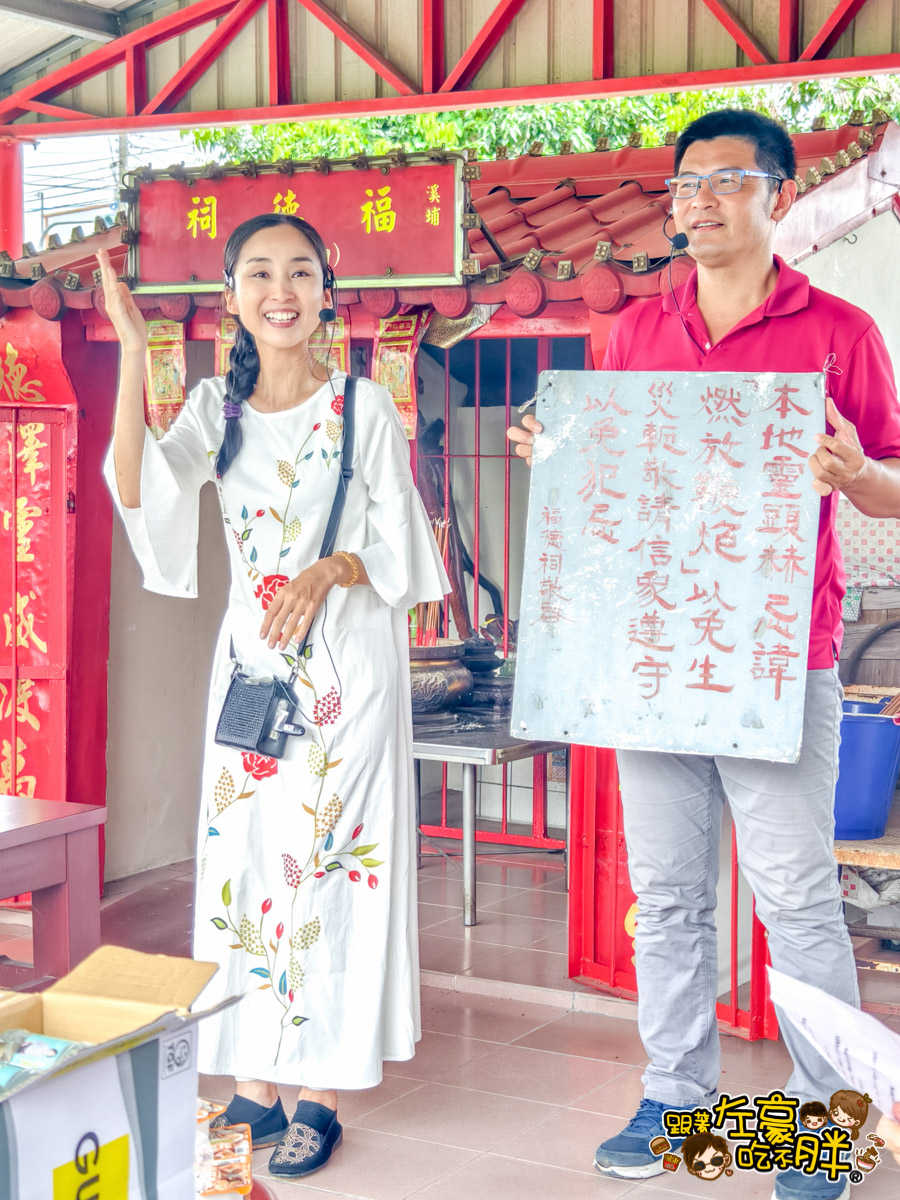 溪埔
福德祠
本地靈顯赫忌諱
燃放鞭炮」以免生
災軛敬請信眾遵守
以免犯忌
福德祠敬啓
德
澤
靈
威
GU
跟著左豪吃不胖